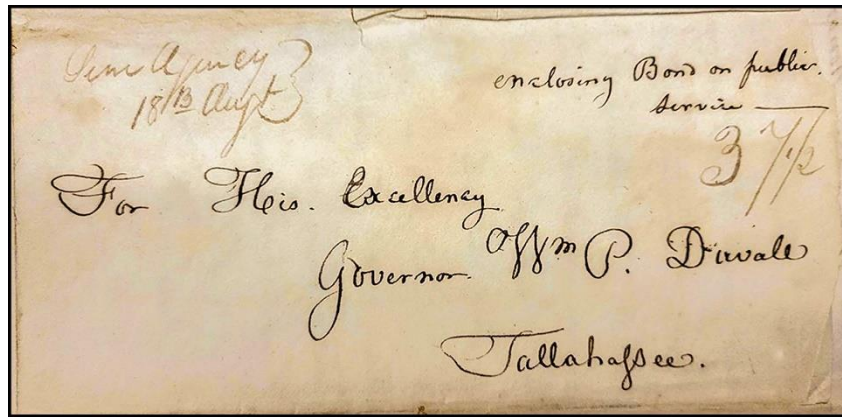 Sem Agency
18th Augt
enclosing Bond on public
service
37 1/2
For His. Excellency
Governor Wm P. Duvale
Tallahassee.